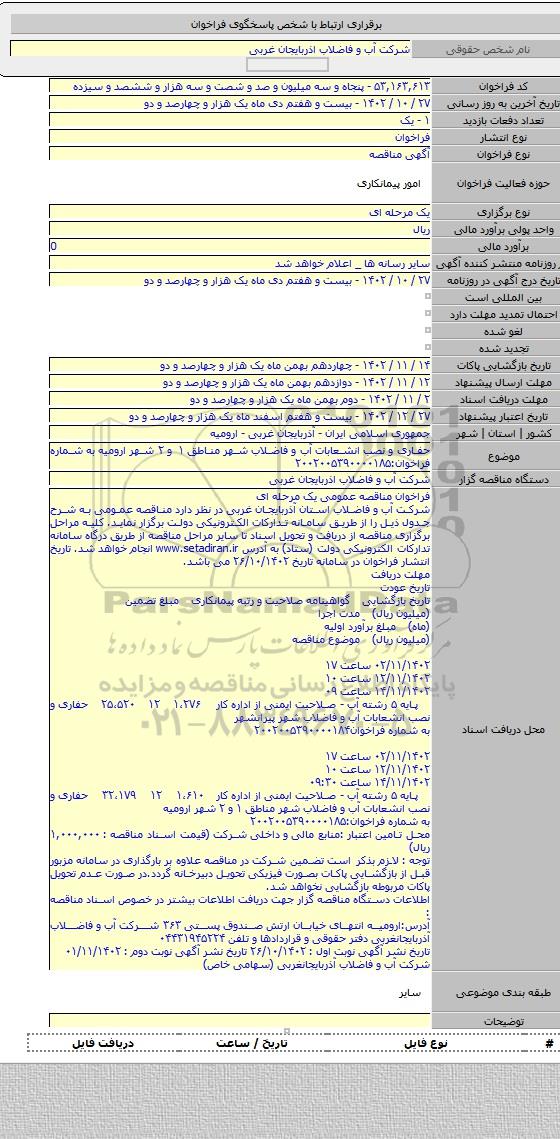 برقراری ارتباط با شخص پاسخگوی فراخوان
نام شخص حقوقی شرکت آب و فاضلاب اذربایجان غربی
کد فراخوان ۵۳,۱۶۳,۶۱۳ - پنجاه و سه میلیون و صد و شصت و سه هزار و ششصد و سیزده
تاریخ آخرین به روز رسانی ۲۷ / ۱۰ / ۱۴۰۲ - بیست و هفتم دی ماه یک هزار و چهارصد و دو
تعداد دفعات بازدید ۱ - یک
نوع انتشار فراخوان
نوع فراخوان آگهی مناقصه
حوزه فعالیت فراخوان امور پیمانکاری
نوع برگزاری یک مرحله ای
واحد پولی برآورد مالی ریال
برآورد مالی 0
روزنامه منتشر کننده آگهی سایر رسانه ها _ اعلام خواهد شد
تاریخ درج آگهی در روزنامه ۲۷ / ۱۰ / ۱۴۰۲ - بیست و هفتم دی ماه یک هزار و چهارصد و دو
بین المللی است
احتمال تمدید مهلت دارد
لغو شده
تجدید شده
تاریخ بازگشایی پاکات ۱۴ / ۱۱ / ۱۴۰۲ - چهاردهم بهمن ماه یک هزار و چهارصد و دو
مهلت ارسال پیشنهاد ۱۲ / ۱۱ / ۱۴۰۲ - دوازدهم بهمن ماه یک هزار و چهارصد و دو
مهلت دریافت اسناد ۲ / ۱۱ / ۱۴۰۲ - دوم بهمن ماه یک هزار و چهارصد و دو
تاریخ اعتبار پیشنهاد ۲۷ / ۱۲ / ۱۴۰۲ - بیست و هفتم اسفند ماه یک هزار و چهارصد و دو
کشور | استان | شهر جمهوری اسلامی ایران - آذربایجان غربی - ارومیه
موضوع حفاری و نصب انشعابات آب و فاضلاب شهر مناطق ۱ و ۲ شهر ارومیه به شماره
فراخوان:۲۰۰۲۰۰۵۳۹۰۰۰۰۱۸۵
دستگاه مناقصه گزار شرکت آب و فاضلاب اذربایجان غربی
محل دریافت اسناد
فراخوان مناقصه عمومی یک مرحله ای
شرکت آب و فاضلاب استان آذربایجان غربی در نظر دارد مناقصه عمومی به شرح
جدول ذیل را از طریق سامانه تدارکات الکترونیکی دولت برگزار نماید. کلیه مراحل
برگزاری مناقصه از دریافت و تحویل اسناد تا سایر مراحل مناقصه از طریق درگاه سامانه
تدارکات الکترونیکی دولت (ستاد) به آدرس www.setadiran.ir انجام خواهد شد. تاریخ
انتشار فراخوان در سامانه تاریخ ۲۶/۱۰/۱۴۰۲ می باشد.
مهلت دریافت
تاریخ عودت
تاریخ بازگشایی گواهینامه صلاحیت و رتبه پیمانکاری مبلغ تضمین
(میلیون ریال) مدت اجرا
(ماه) مبلغ برآورد اولیه
(میلیون ریال) موضوع مناقصه
۰۲/۱۱/۱۴۰۲ ساعت ۱۷
۱۲/۱۱/۱۴۰۲ ساعت ۱۰
۱۴/۱۱/۱۴۰۲ ساعت ۰۹
پایه ۵ رشته آب - صلاحیت ایمنی از اداره کار ۱،۲۷۶ ۱۲ ۲۵،۵۲۰ حفاری و
نصب انشعابات آب و فاضلاب شهر پیرانشهر
به شماره فراخوان:۲۰۰۲۰۰۵۳۹۰۰۰۰۱۸۴
۰۲/۱۱/۱۴۰۲ ساعت ۱۷
۱۲/۱۱/۱۴۰۲ ساعت ۱۰
۱۴/۱۱/۱۴۰۲ ساعت ۰۹:۳۰
پایه ۵ رشته آب - صلاحیت ایمنی از اداره کار ۱،۶۱۰ ۱۲ ۳۲،۱۷۹ حفاری و
نصب انشعابات آب و فاضلاب شهر مناطق ۱ و ۲ شهر ارومیه
به شماره فراخوان:۲۰۰۲۰۰۵۳۹۰۰۰۰۱۸۵
محل تامین اعتبار :منابع مالی و داخلی شرکت (قیمت اسناد مناقصه : ۱,۰۰۰,۰۰۰
ریال)
توجه : لازم بذکر است تضمین شرکت در مناقصه علاوه بر بارگذاری در سامانه مزبور
قبل از بازگشایی پاکات بصورت فیزیکی تحویل دبیرخانه گردد.در صورت عدم تحویل
پاکات مربوطه بازگشایی نخواهد شد.
اطلاعات دستگاه مناقصه گزار جهت دریافت اطلاعات بیشتر در خصوص اسناد مناقصه
:
آدرس:ارومیه انتهای خیابان ارتش صندوق پستی ۳۶۳ شرکت آب و فاضلاب
آذربایجانغربی دفتر حقوقی و قراردادها و تلفن ۰۴۴۳۱۹۴۵۲۲۴
تاریخ نشر آگهی نوبت اول : ۲۶/۱۰/۱۴۰۲ تاریخ نشر آگهی نوبت دوم : ۰۱/۱۱/۱۴۰۲
شرکت آب و فاضلاب آذربایجانغربی (سهامی خاص)
طبقه بندی موضوعی سایر
توضیحات
# نوع فایل تاریخ / ساعت دریافت فایل
ParsNamadData
مرکز فرآوری اطلاعات پارس نماد داده ها
پایگاه اطلاع رسانی مناقصه و مزایده
۰۲۱-۸۸۳۴۹۶۷۰-۵